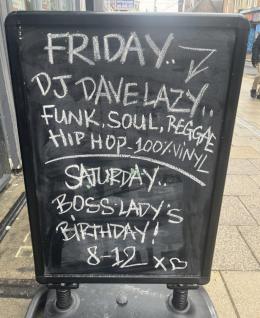 FRIDAY..
DJ DAVE LAZY..
FUNK, SOUL, REGGAE
HIP HOP - 100% VINYL
SATURDAY..
BOSS-LADY'S
BIRTHDAY!
8-12 x